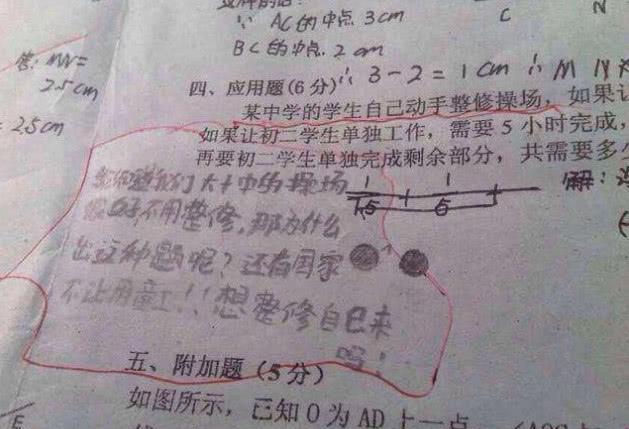 AC的中点 3cm
BC的中点 2cm
C
N
MN=
2.5cm
= 2.5cm
四、应用题(6分)
∴ 3-2=1cm ∴ M N
某中学的学生自己动手整修操场，如果让
如果让初二学生单独工作，需要5小时完成，
再要初二学生单独完成剩余部分，共需要多少
我们大十中的操场
很好不用整修,那为什么
出这种题呢？还有国家
不让用童工!!想整修自己来
吗!
1 1
解:
7.5 5
五、附加题(5分)
如图所示，已知O为AD上一点
E